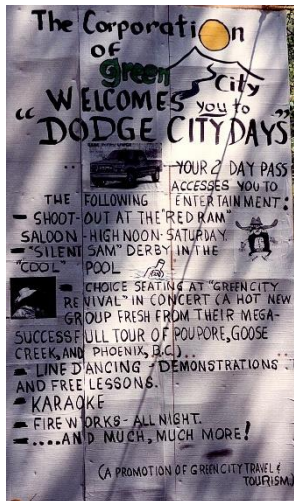 The Corporation
of
green City
WELCOMES you to
"DODGE CITY DAYS"
YOUR 2 DAY PASS
ACCESSES YOU TO
THE FOLLOWING ENTERTAINMENT:
- SHOOT-OUT AT THE "RED RAM"
SALOON - HIGH NOON - SATURDAY.
- "SILENT SAM" DERBY IN THE
"COOL" POOL
- CHOICE SEATING AT "GREENCITY
REVIVAL" IN CONCERT (A HOT NEW
GROUP FRESH FROM THEIR MEGA-
SUCCESSFULL TOUR OF POUPORE, GOOSE
CREEK, AND PHOENIX, B.C.)..
- LINE DANCING - DEMONSTRATIONS
AND FREE LESSONS.
- KARAOKE
- FIREWORKS - ALL NIGHT.
- ....AND MUCH, MUCH MORE!
(A PROMOTION OF GREENCITY TRAVEL &
TOURISM.)